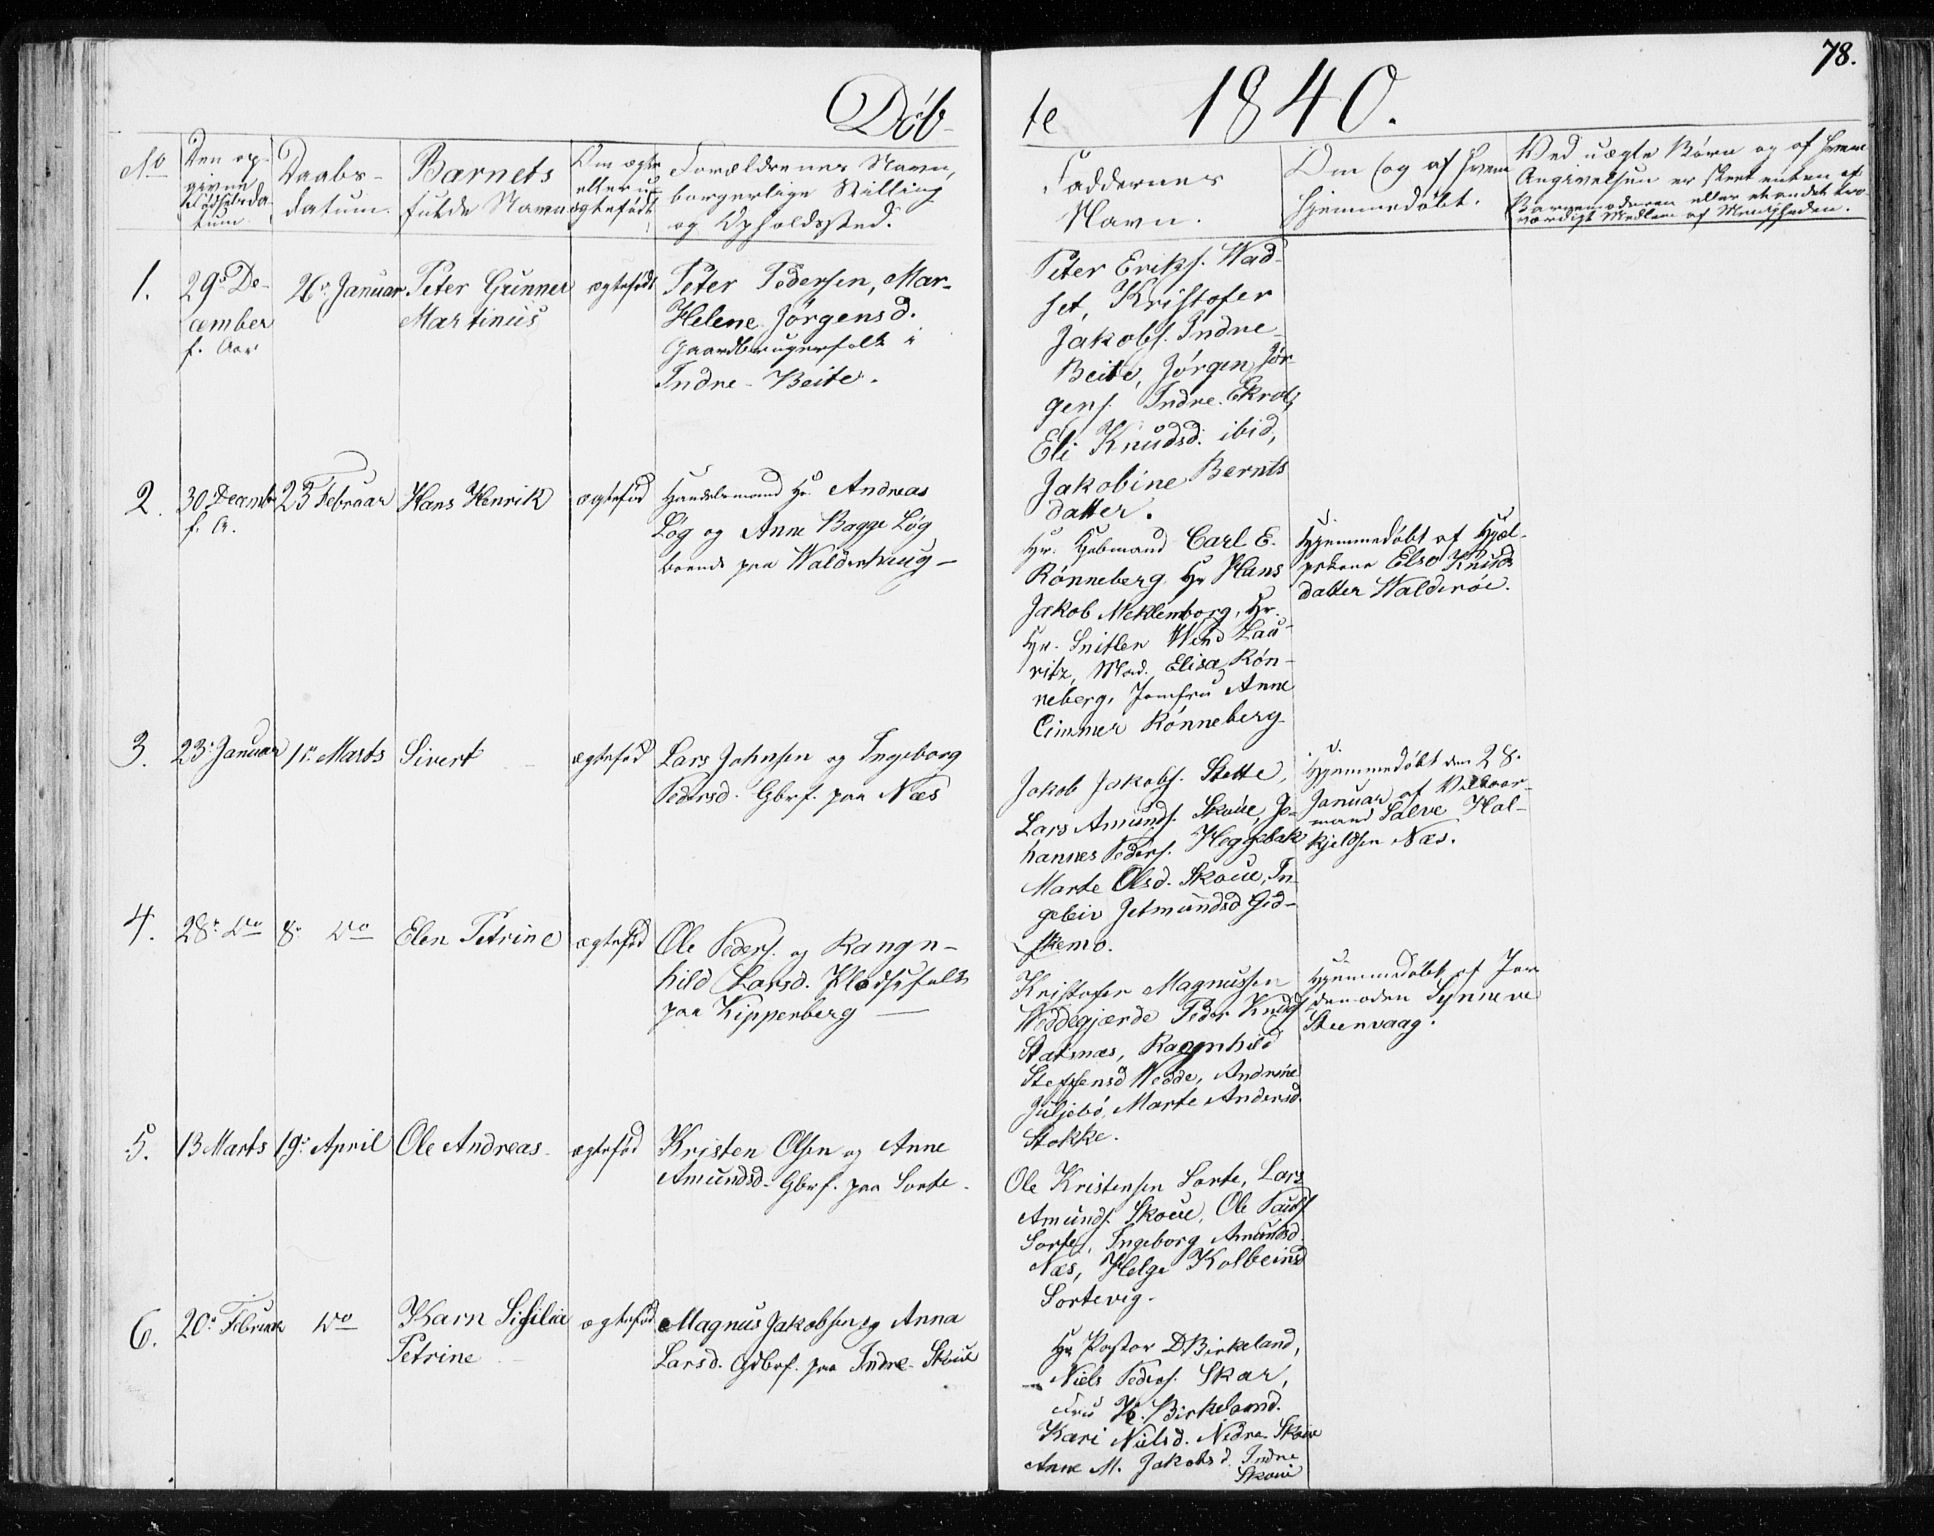 78.
Døb-
te 1840.
No
Den op-
givne
Fødselsda-
tum
Daabs-
datum.
Barnets
fulde Navn
Om ægte
eller u-
ægtefødt
Forældrenes Navn,
borgerlige Stilling
og Opholdssted.
Faddernes
Navn.
Om (og af hvem
hjemmedøbt.
Ved uægte Børn og af hvem
Angivelsen er skeet enten af
Barnemoderen eller et andet tro-
værdigt Medlem af Menigheden.
1.
29. De-
cember
f. Aar
26. Januar
Peter Gunner
Martinus
ægtefødt
Peter Pedersen, Mar-
Helene Jørgensd.
Gaardbrugerfolk i
Indre-Beite.
Peter Eriks. Wad-
set, Kristofer
Jakobs. Indre-
Beite, Jørgen Jør-
gens. Indre. Ekrol,
Eli Knudsd. ibid,
Jakobine Bernts
datter.
2.
30. Decemb
f. A.
23 Februar
Hans Henrik
ægtefød
Handelsmand Hr. Andreas
Løg og Anne Bagge Løg
boende paa Walderhaug-
Hr. Kjøbmand Carl E.
Rønneberg, Hr Hans
Jakob Meklenborg, Hr.
Hr. Snitler Wind Lau-
ritz, Mad. Elisa Røn-
neberg, Jomfru Anne
Cimmer Rønneberg
Hjemmedøbt af Hjæl-
pekone Else Knuds
datter Walderøe.
3.
23. Januar
1. Marts
Sivert
ægtefød
Lars Johnsen og Ingeborg
Pedersd. Gbrf. paa Næs
Jakob Jakobs. Stette,
Lars Amunds. Skoue, Jo-
hannes Peders. Heggebak
Marte Olsd. Skoue, In-
gebeir Jetmundsd Gid-
skemo.
Hjemmedøbt den 28.
Januar af Vilkaar-
mand Salve Hal-
kjeldsen Næs.
4.
28. Do
8. Do
Elen Petrine
ægtefød
Ole Peders. og Rangn-
hild Larsd. Pladsefolk
paa Kipperberg
Kristofer Magnussen
Weddegjærde Peder Knuds
Statsnæs, Ragnhild
Steffensd Wedde, Andrine
Juljebø, Marte Andersd.
Stokke.
Hjemmedøbt af Jor
demoderen Synneve
Steenvaag.
5.
13 Marts
19. April
Ole Andreas
ægtefød
Kristen Olsen og Anne
Amundsd. Gbrf. paa Sorte.
Ole Kristensen Sorte, Lars
Amunds. Skoue, Ole Pauls
Sorte, Ingeborg Amundsd.
Næs, Helge Kolbeinsd
Sortevig.
6.
20. Februar
Do
Karn Sisilia
Petrine
ægtefød
Magnus Jakobsen og Anna
Larsd. Gdbrf. paa Indre-Skoue
Hr Pastor D Birkeland,
Niels Peders. Skar,
Fru K. Birkeland.
Kari Nielsd. Nedre-Skoue
Anne M. Jakobsd. Indre
Skoue